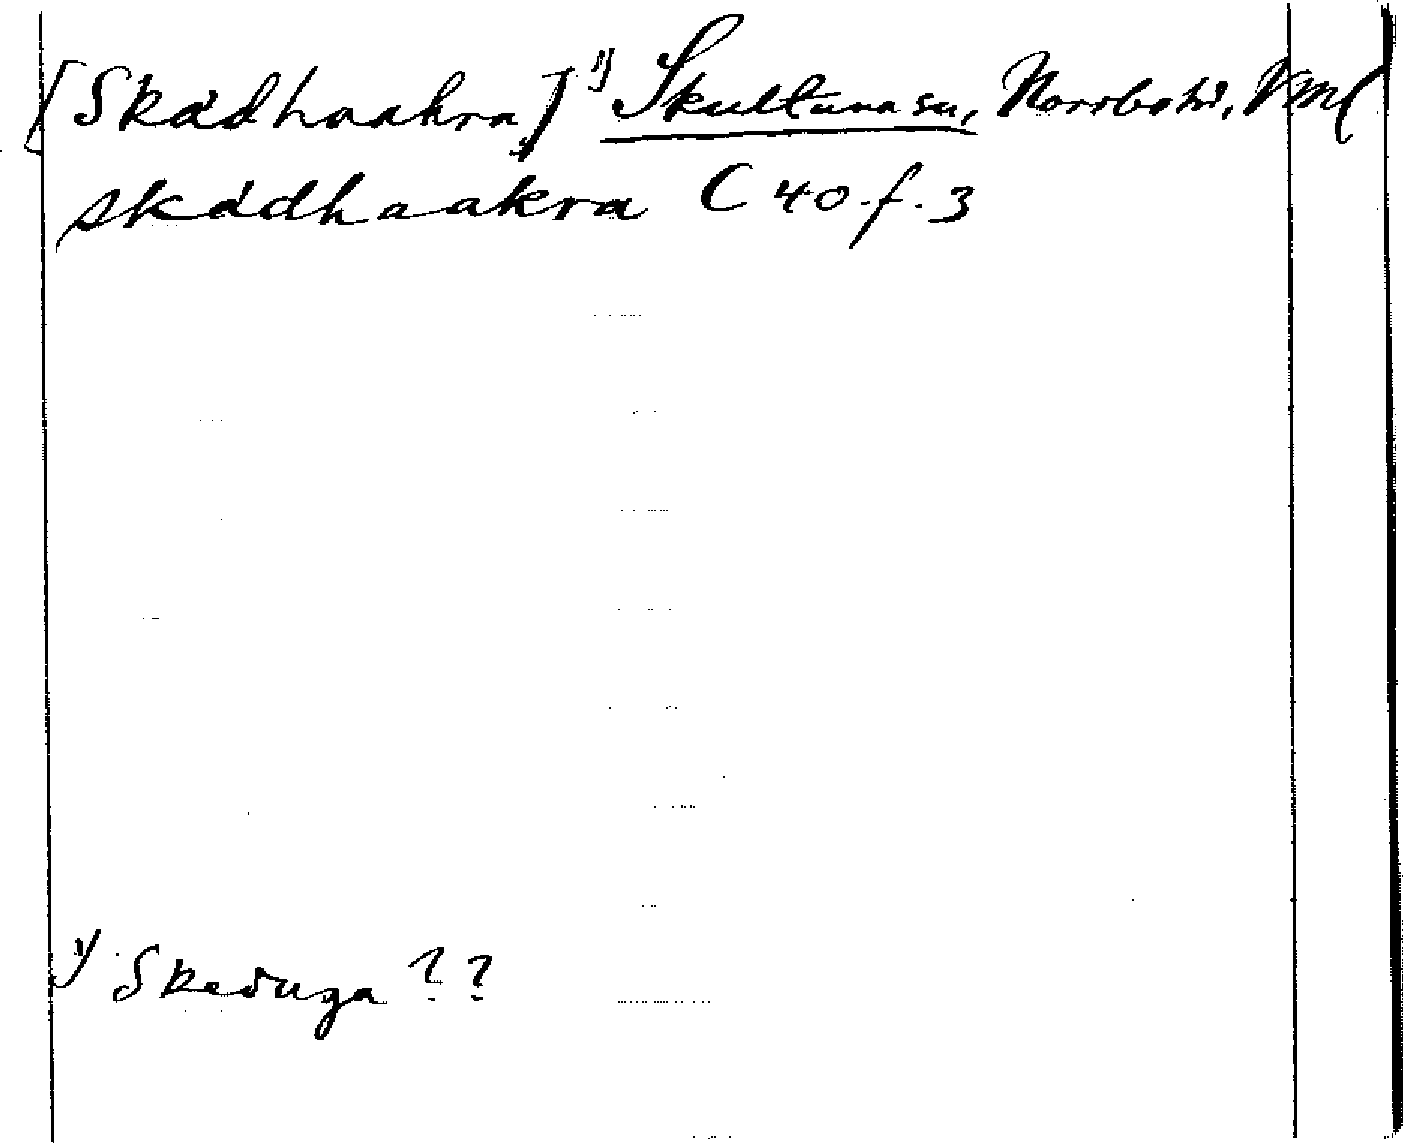 [Skadhaakra] 1) Skultuna sn, Norrbo hd, Vml
skadhaakra C 40 f. 3
1) Skeduga ??